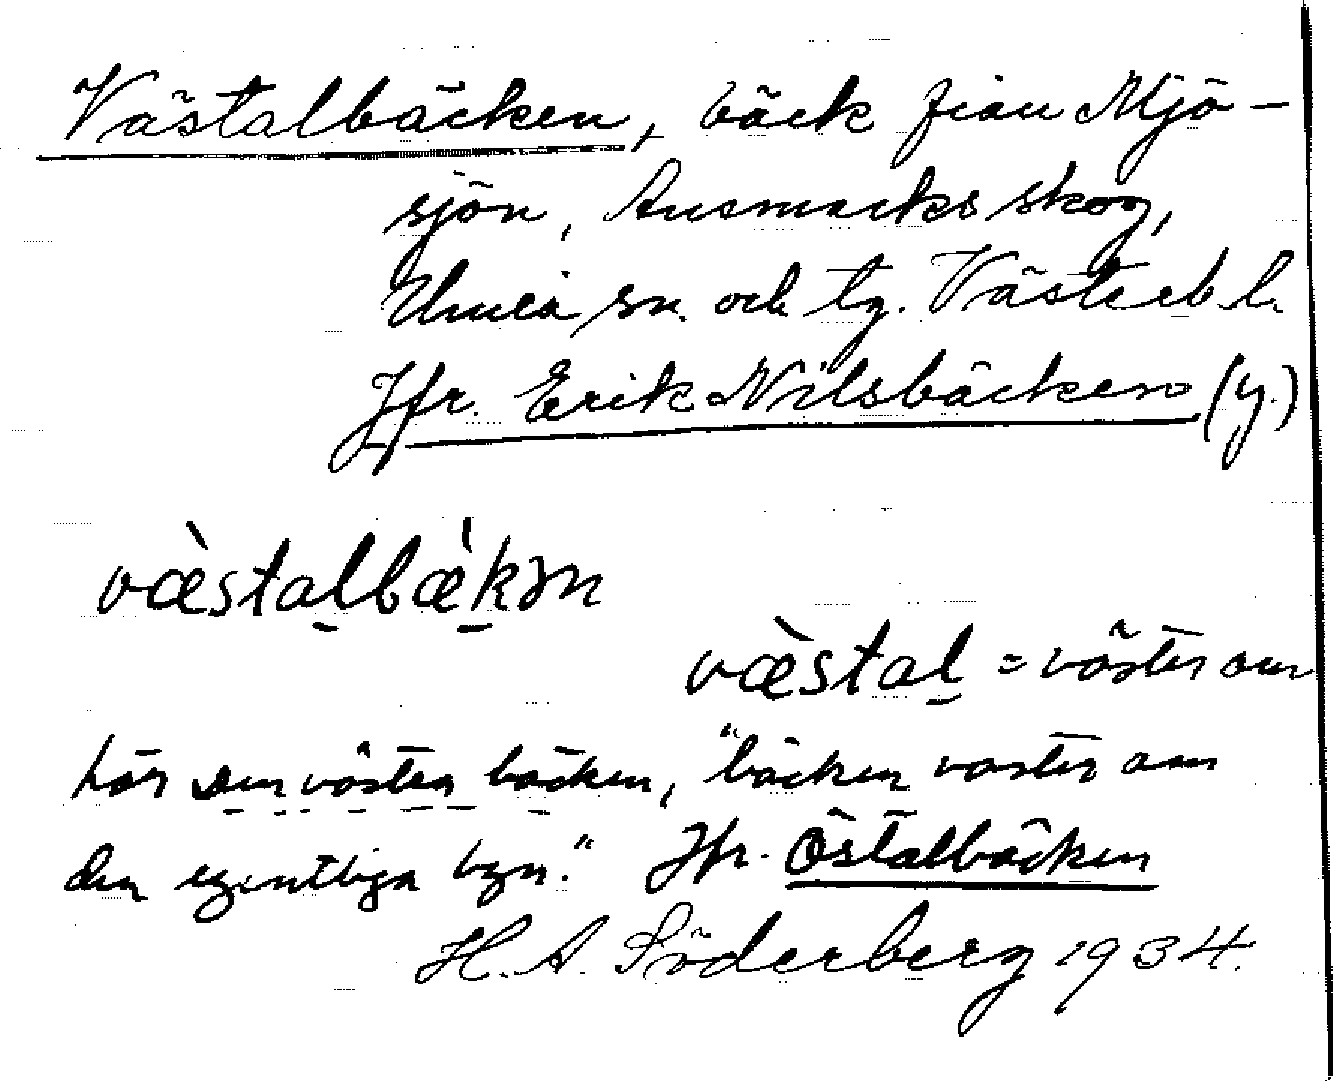 Västalbäcken, bäck från Mjö-
sjön, Ansmarks skog,
Umeå sn. och tg. Västerb. l.
Jfr. Erik-Nilsbäcken (y.)
væ̀stal̠bæ̀k̠ən
væ̀stal̠ = väster om
här den västra bäcken, "bäcken väster om
den egentliga byn." Jfr. Östalbäcken
H. A. Söderberg 1934.